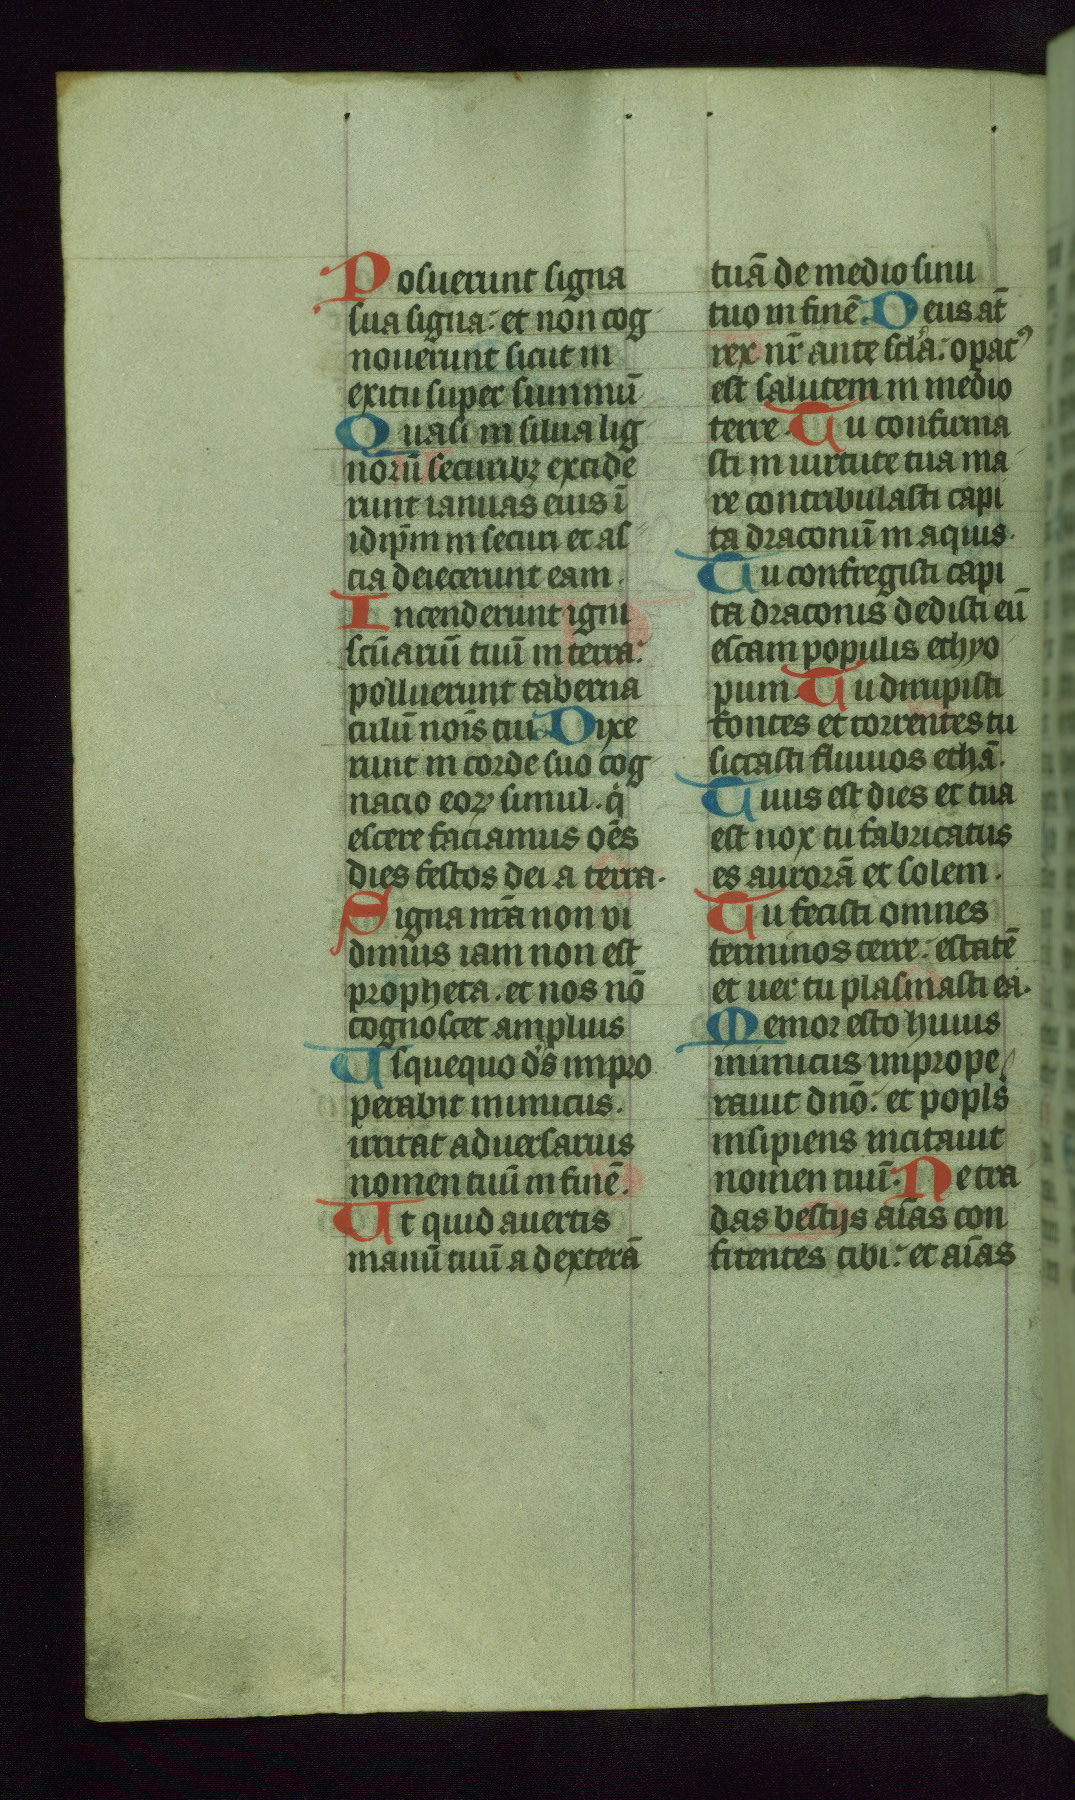 Posuerunt signa
sua signa: et non cog
nouerunt sicut in
exitu super summū
Quasi in silua lig
norū securibꝫ excide
runt ianuas eius ī
idip̄m in securi et as
cia deiecerunt eam.
Incenderunt igni
scūariū tuū in terra:
polluerunt taberna
culū nōis tui. Dixe
runt in corde suo cog
nacio eoꝝ simul. q̇
escere faciamus oēs
dies festos dei a terra.
Signa nr̄a non vi
dimus iam non est
propheta. et nos nō
cognoscet amplius
Usquequo d̄s impro
perabit inimicus.
irritat aduersarius
nomen tuū in finē.
Ut quid auertis
manū tuū a dexterā
tuā de medio sinu
tuo in finē. Deus at̄
rex nr̄ ante scl̄a: opatꝰ
est salutem in medio
terre. Tu confirma
sti in uirtute tua ma
re contribulasti capi
ta draconū in aquis.
Tu confregisti capi
ta draconis dedisti eū
escam populis ethyo
pum. Tu dirupisti
fontes et torrentes tu
siccasti fluuios ethā.
Tuus est dies et tua
est nox tu fabricatus
es aurorā et solem.
Tu fecisti omnes
terminos terre: estatē
et uer tu plasmasti ea.
Memor esto huius
inimicus imprope
rauit dn̄o: et popl̄s
insipiens incitauit
nomen tuū. Ne tra
das bestijs aīas con
fitentes tibi: et aīas